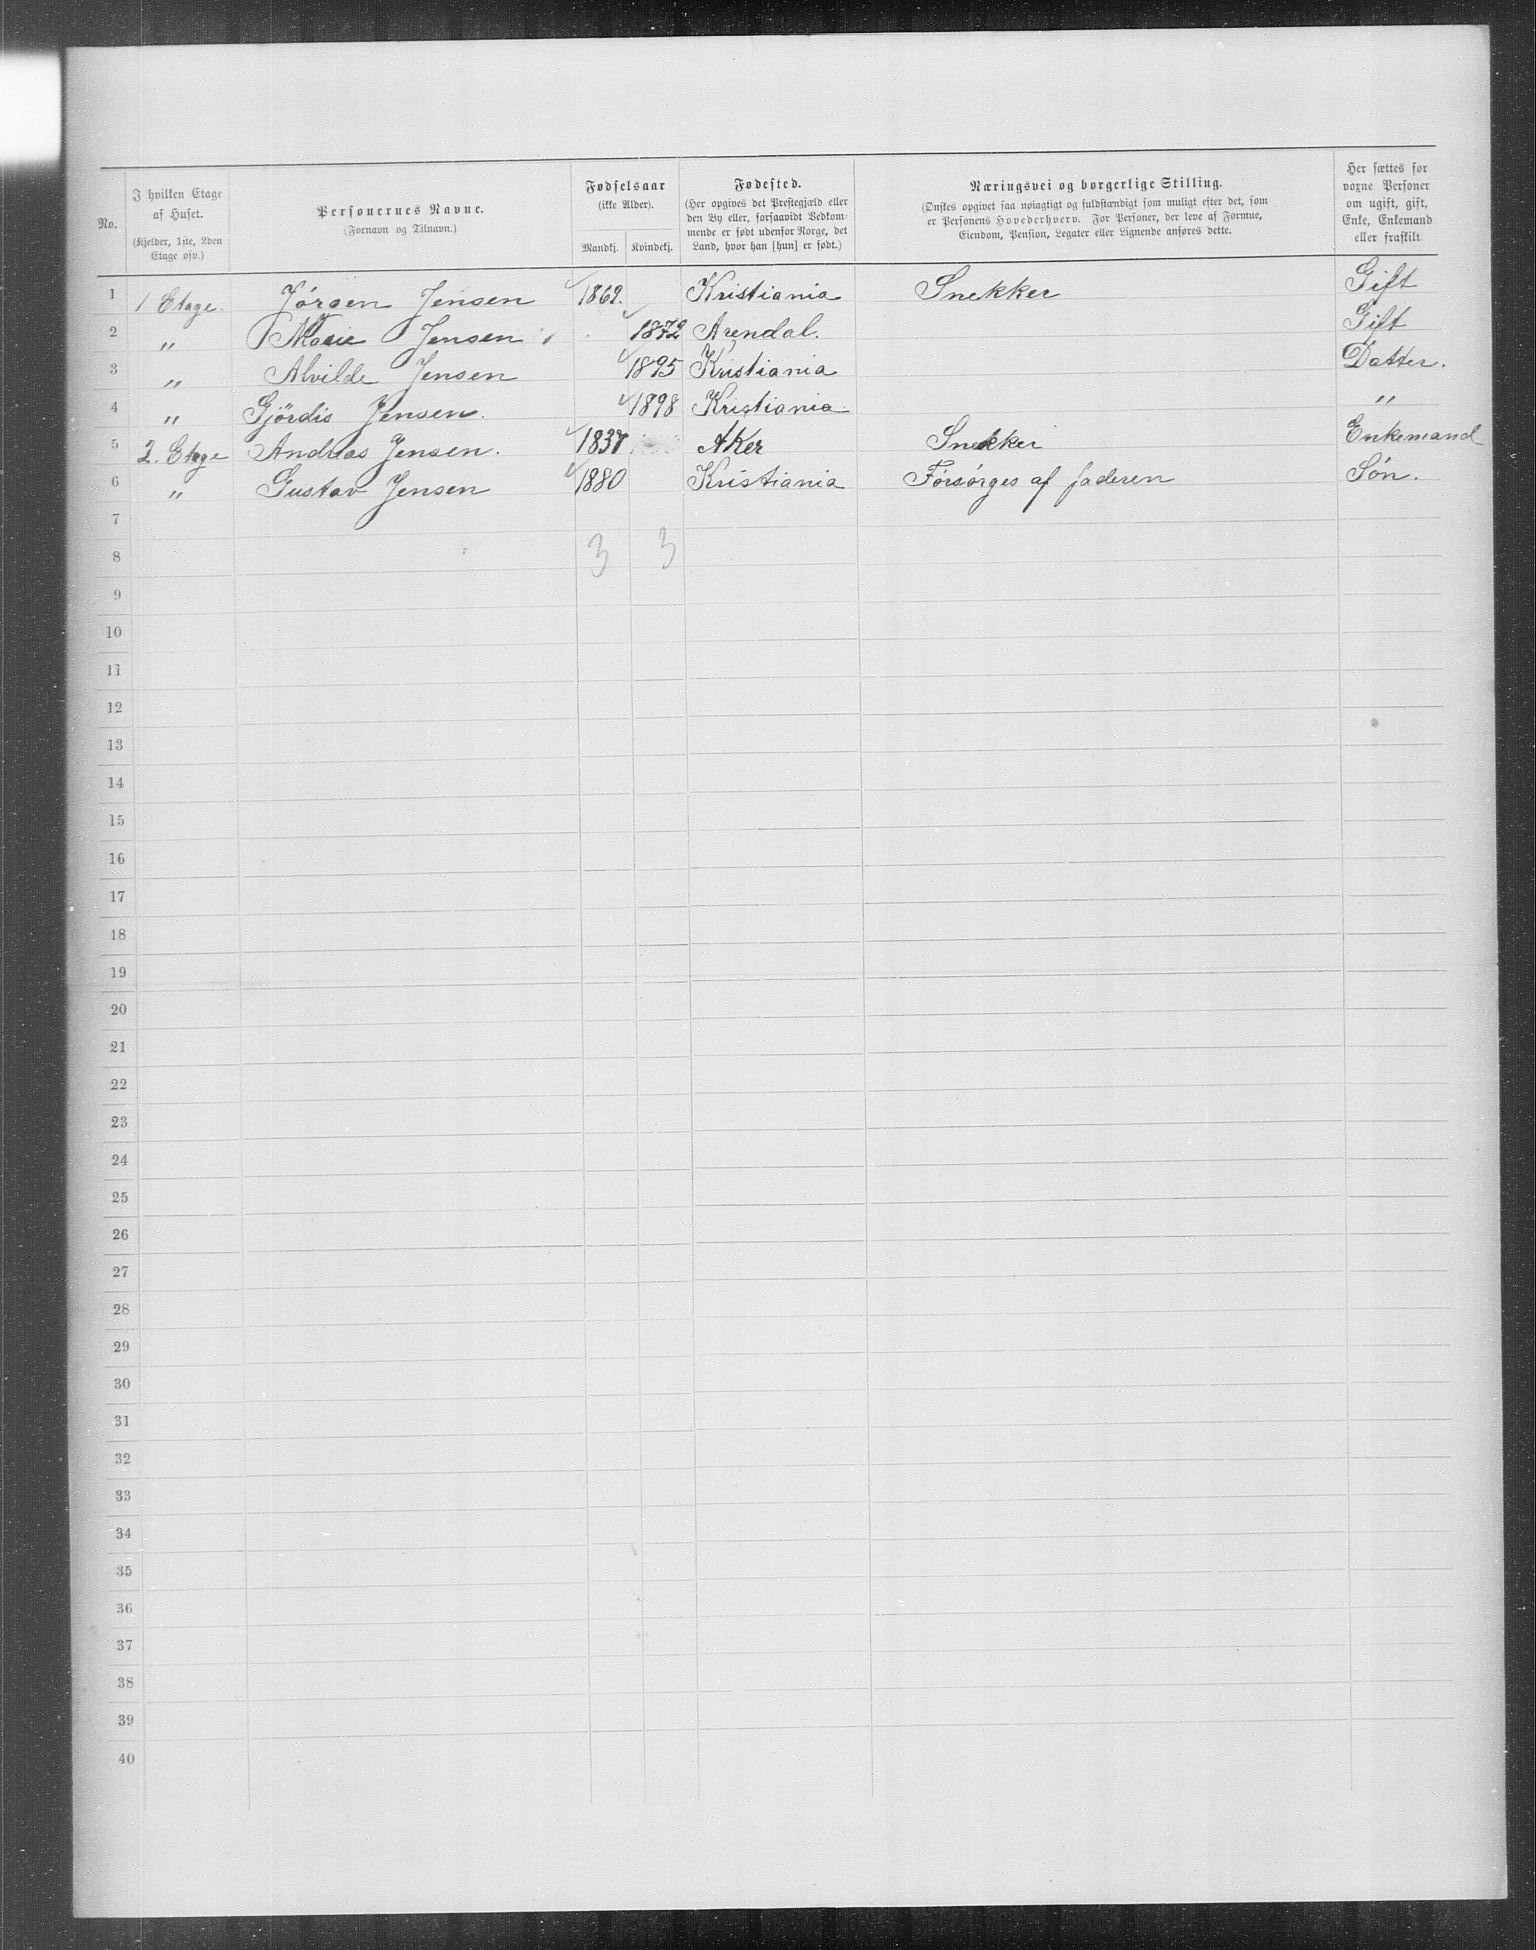 No. | I hvilken Etage af Huset. (Kjelder, 1ste, 2den Etage osv.) | Personernes Navne. (Fornavn og Tilnavn.) | Fødselsaar (ikke Alder). Mandkj. | Kvindekj. | Fødested. (Her opgives det Prestegjæld eller den By eller, forsaavidt Vedkommende er født udenfor Norge, det Land, hvor han [hun] er født.) | Næringsvei og borgerlige Stilling. (Ønskes opgivet saa nøiagtigt og fuldstændigt som muligt efter det, som er Personens Hovederhverv. For Personer, der leve af Formue, Eiendom, Pension, Legater eller Lignende anføres dette. | Her sættes for voxne Personer om ugift, gift, Enke, Enkemand eller fraskilt
1 | 1 Etage. | Jørgen Jensen | 1869. | | Kristiania | Snekker | Gift
2 | " | Marie Jensen | | 1872 | Arendal. | | Gift
3 | " | Alvilde Jensen | | 1895 | Kristiania | | Datter.
4 | " | Gjördis Jensen. | | 1898 | Kristiania | | "
5 | 2. Etage | Andreas Jensen. | 1837 | | Aker | Snekker | Enkemand
6 | " | Gustav Jensen | 1880 | | Kristiania | Forsørges af faderen | Søn.
7
8 | | | 3 | 3
9
10
11
12
13
14
15
16
17
18
19
20
21
22
23
24
25
26
27
28
29
30
31
32
33
34
35
36
37
38
39
40